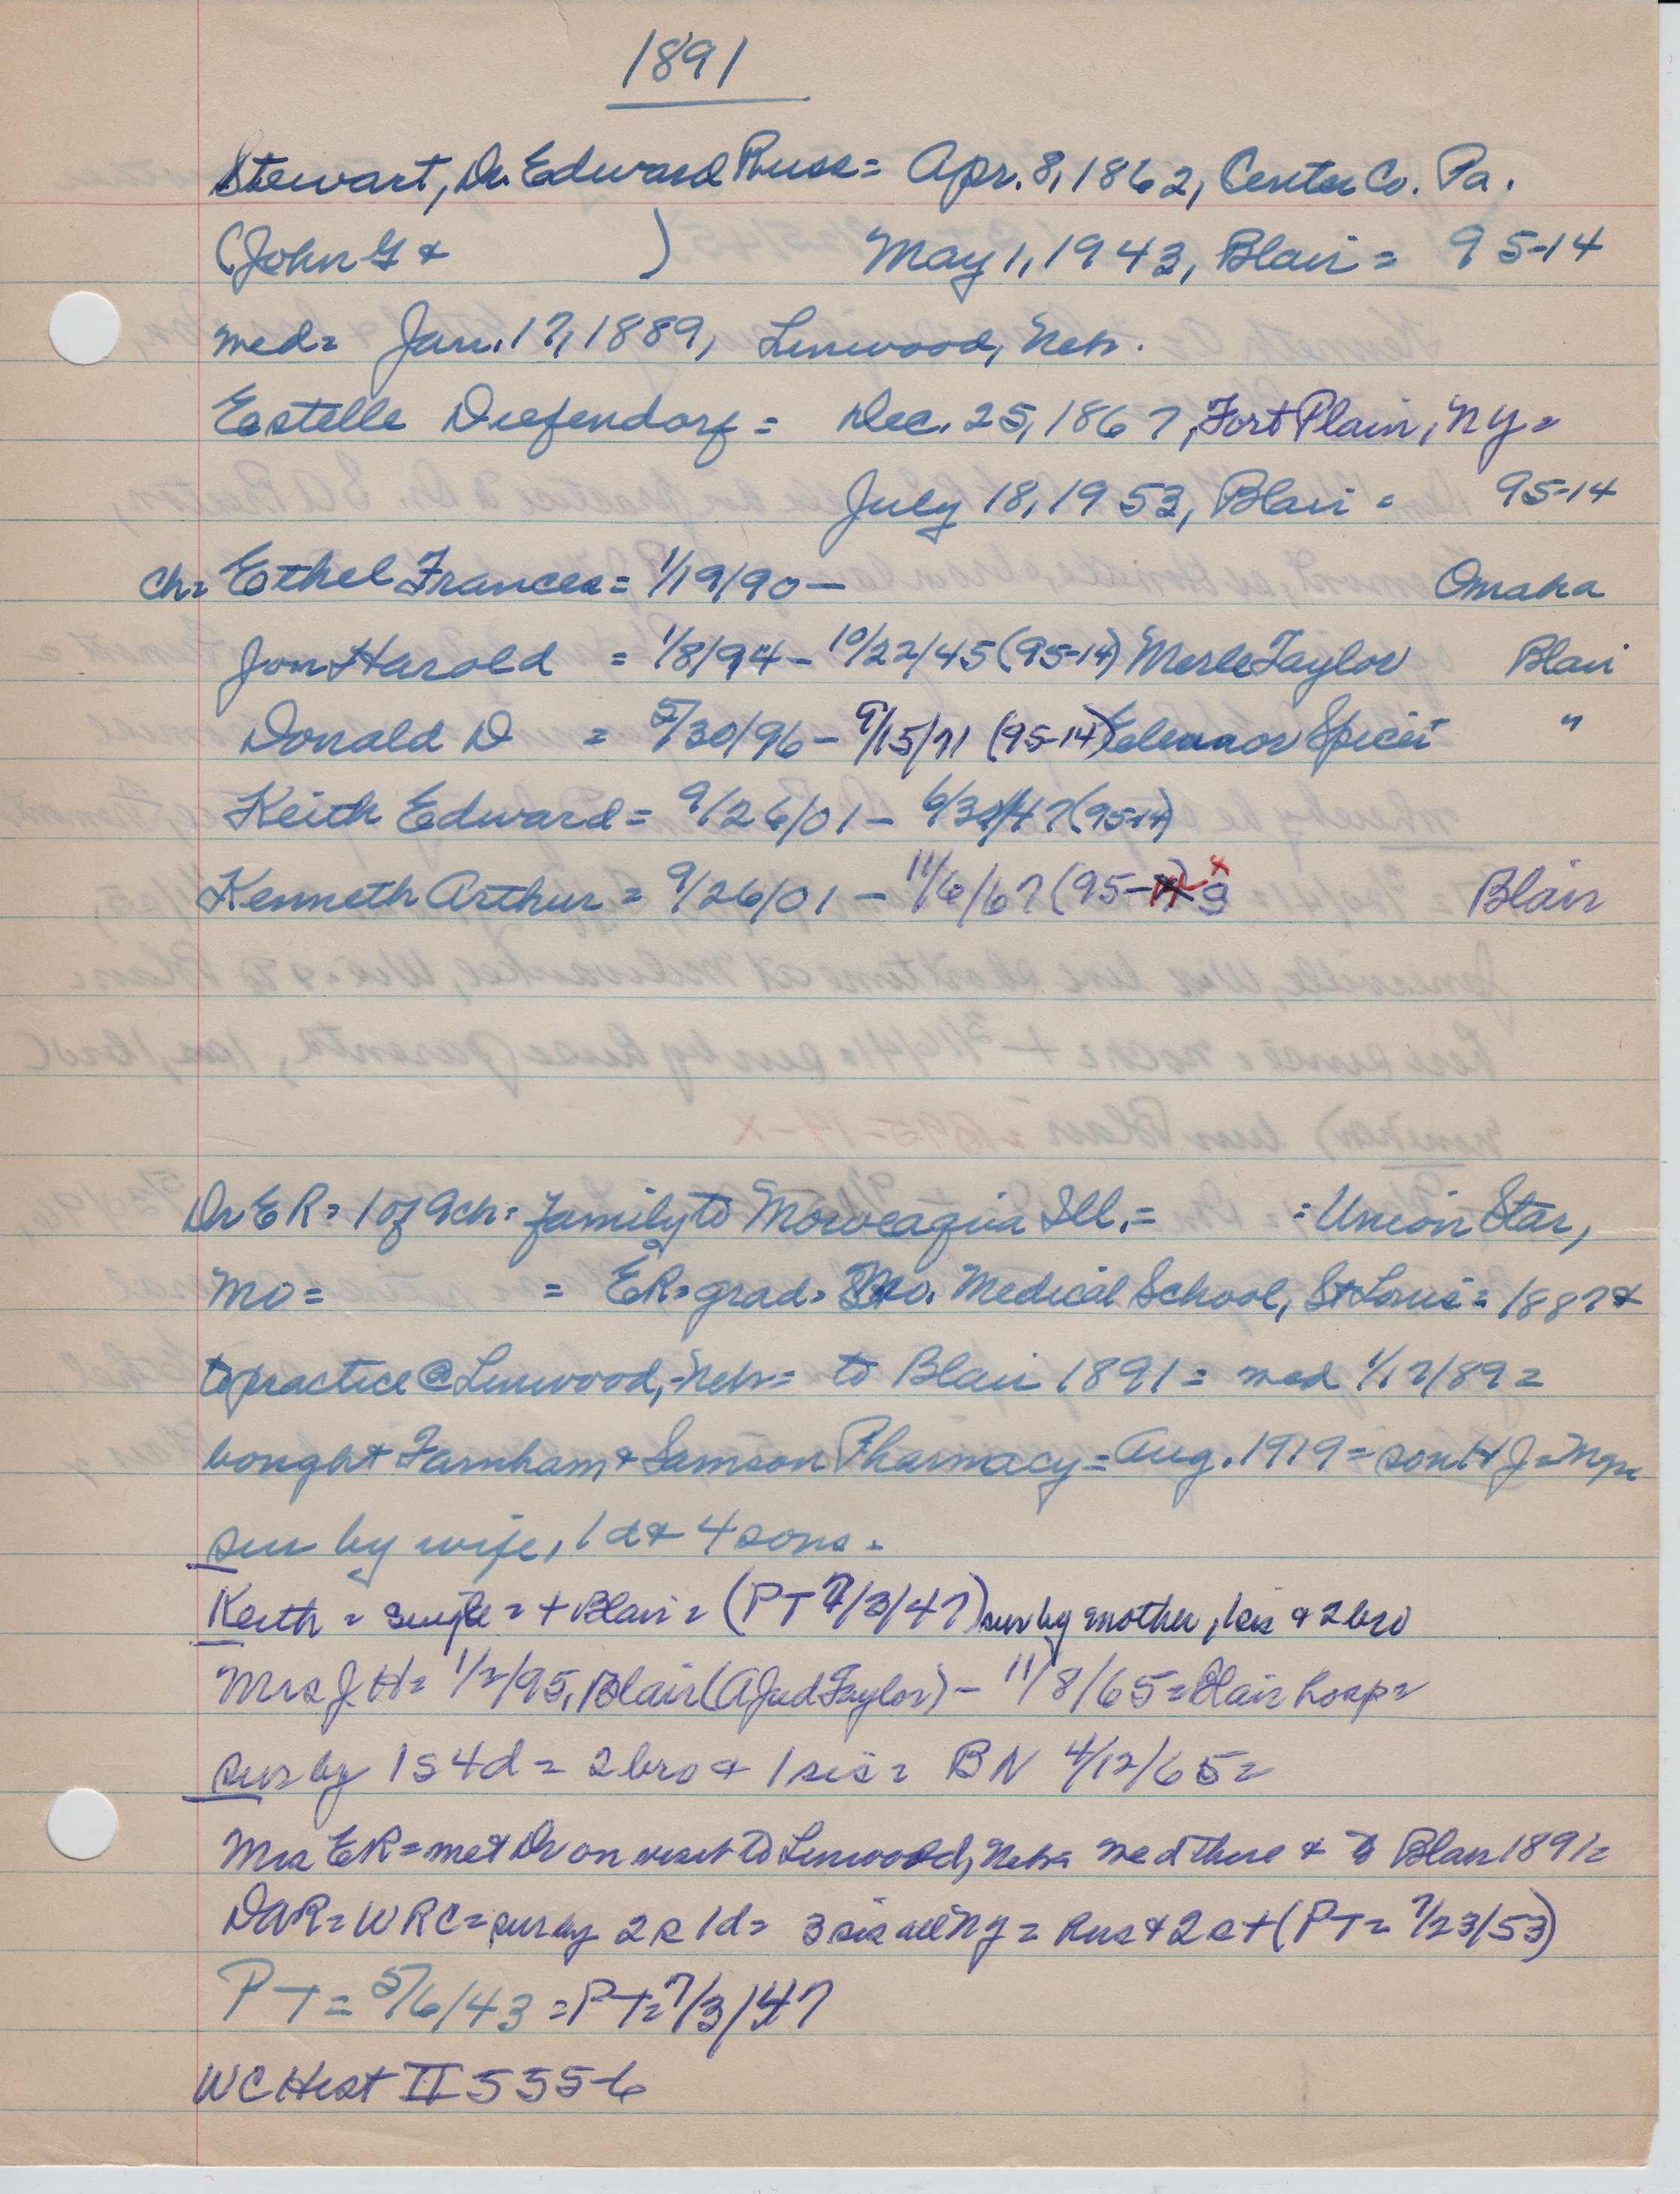 1891
Stewart, Dr. Edward Russ = Apr. 8, 1862, Center Co. Pa.
(John G & ) May 1, 1943, Blair = 95-14
med = Jan. 17, 1889, Linwood, Nebr.
Estelle Diefendorf = Dec. 25, 1867, Fort Plain, NY =
July 18, 1953, Blair = 95-14
Ch = Ethel Frances = 1/19/90 - Omaha
Jon Harold = 1/8/94 - 10/22/45 (95-14) Merle Taylor Blair
Donald D = 5/30/96 - 9/15/71 (95-14) Eleanor Spicer "
Keith Edward = 9/26/01 - 6/30/47 (95-14)
Kenneth Arthur = 9/26/01 - 11/6/67 (95- - 3 x Blair
Dr E R = 1 of 9 ch = family to Moweaqua Ill. = = Union Star,
Mo = = ER = grad = Mo. Medical School, St Louis = 1887 &
to practice @ Linwood, Nebr = to Blair 1891 = med 1/17/89 =
bought Farnham & Samson Pharmacy = Aug. 1919 = son H J = Mgr
sur by wife, 1 d & 4 sons =
Keith = single = + Blair = (PT 7/3/47) sur by mother, 1 sis & 2 bro
Mrs J H = 1/2/95, Blair (A Jud Taylor) - 11/8/65 = Blair hosp =
sur by 1 s 4 d = 2 bro & 1 sis = BN 4/12/65 =
Mrs ER = met Dr on visit to Linwood, Nebr = med there & to Blair 1891 =
DAR = WRC = sur by 2 s 1 d = 3 sis all NY = Hus & 2 s + (PT = 7/23/53)
PT = 5/6/43 = PT = 7/3/47
WC Hist II 555-6